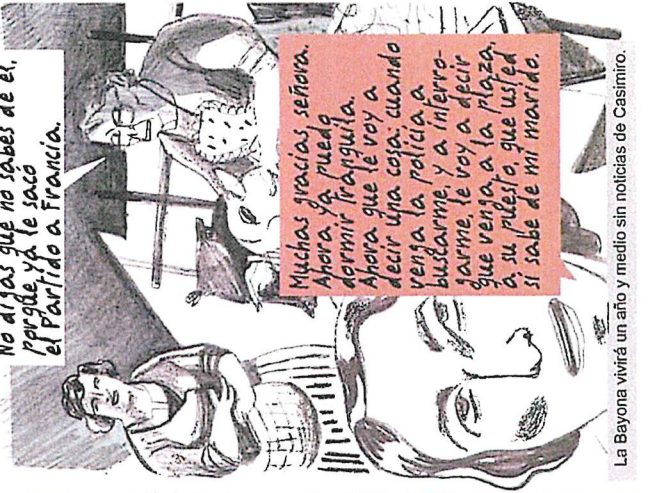 No digas que no sabes de él,
porque ya le sacó
el Partido a Francia.
Muchas gracias, señora.
Ahora ya puedo
dormir tranquila.
Ahora que le voy a
decir una cosa: cuando
venga la policía a
buscarme, y a interro-
garme, le voy a decir
que venga a la plaza,
a su puesto, que usted
sí sabe de mi marido.
La Bayona vivirá un año y medio sin noticias de Casimiro.